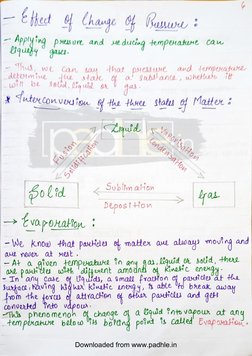 6
- Effect of Change Of Pressure :
- Applying pressure and reducing temperature can
liquefy gases.
- Thus, we can say that pressure and temperature
determine the state of a substance, whether it
will be solid, liquid or gas.
* Interconversion of the three states of Matter :
Liquid
Fusion
Solidification
Vaporisation
Condensation
padhle
Solid
Sublimation
Deposition
Gas
→ Evaporation :
- We know that particles of matter are always moving and
are never at rest.
- At a given temperature in any gas, liquid or solid, there
are particles with different amounts of kinetic energy.
- In any case of liquids, a small fraction of particles at the
surface, having higher kinetic energy, is able to break away
from the forces of attraction of other particles and gets
converted into vapour.
- This phenomenon of change of a liquid into vapour at any
temperature below its boiling point is called Evaporation.
Downloaded from www.padhle.in